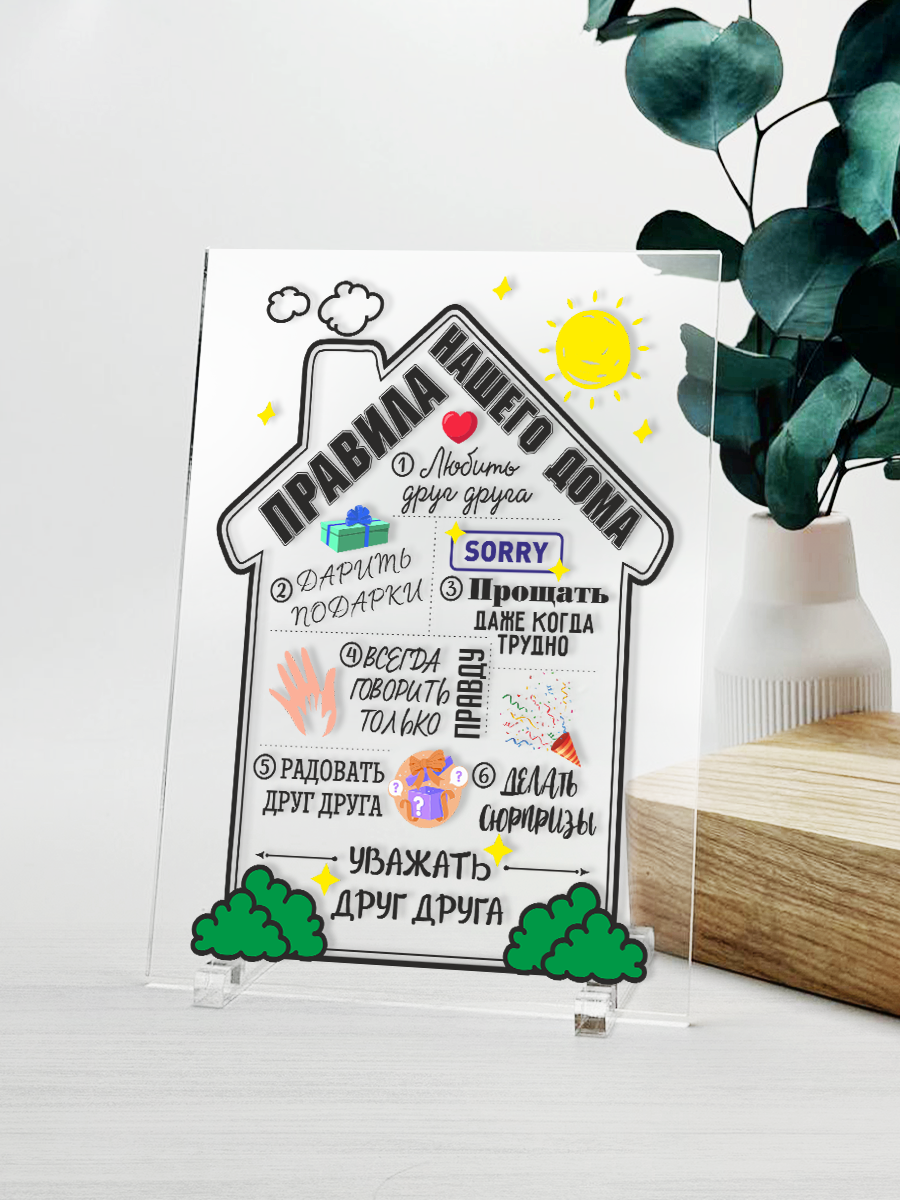 ПРАВИЛА
НАШЕГО ДОМА
① Любить
друг друга
② ДАРИТЬ
ПОДАРКИ
SORRY
③ Прощать
ДАЖЕ КОГДА
ТРУДНО
④ ВСЕГДА
ГОВОРИТЬ
ТОЛЬКО
ПРАВДУ
⑤ РАДОВАТЬ
ДРУГ ДРУГА
? ? ?
⑥ ДЕЛАТЬ
СЮРПРИЗЫ
УВАЖАТЬ
ДРУГ ДРУГА